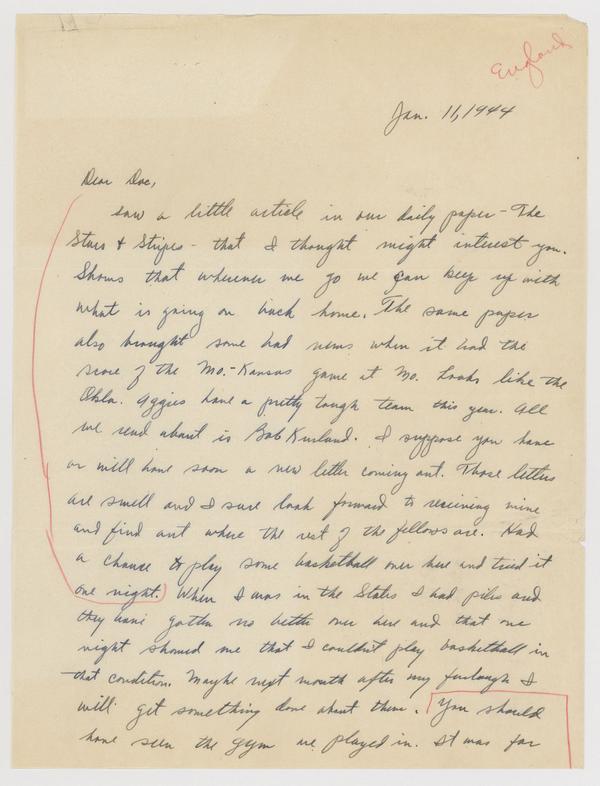 England
Jan. 11, 1944
Dear Doc,
Saw a little article in our daily paper - The
Stars & Stripes - that I thought might interest you.
Shows that wherever we go we can keep up with
what is going on back home. The same paper
also brought some bad news when it had the
score of the Mo.-Kansas game at Mo. Looks like the
Okla. Aggies have a pretty tough team this year. All
we read about is Bob Kurland. I suppose you have
or will have soon a new letter coming out. Those letters
are swell and I sure look forward to receiving mine
and find out where the rest of the fellows are. Had
a chance to play some basketball over here and tried it
one night. When I was in the States I had piles and
they have gotten no better over here and that one
night showed me that I couldn't play basketball in
that condition. Maybe next month after my furlough I
will get something done about them. You should
have seen the gym we played in. It was for